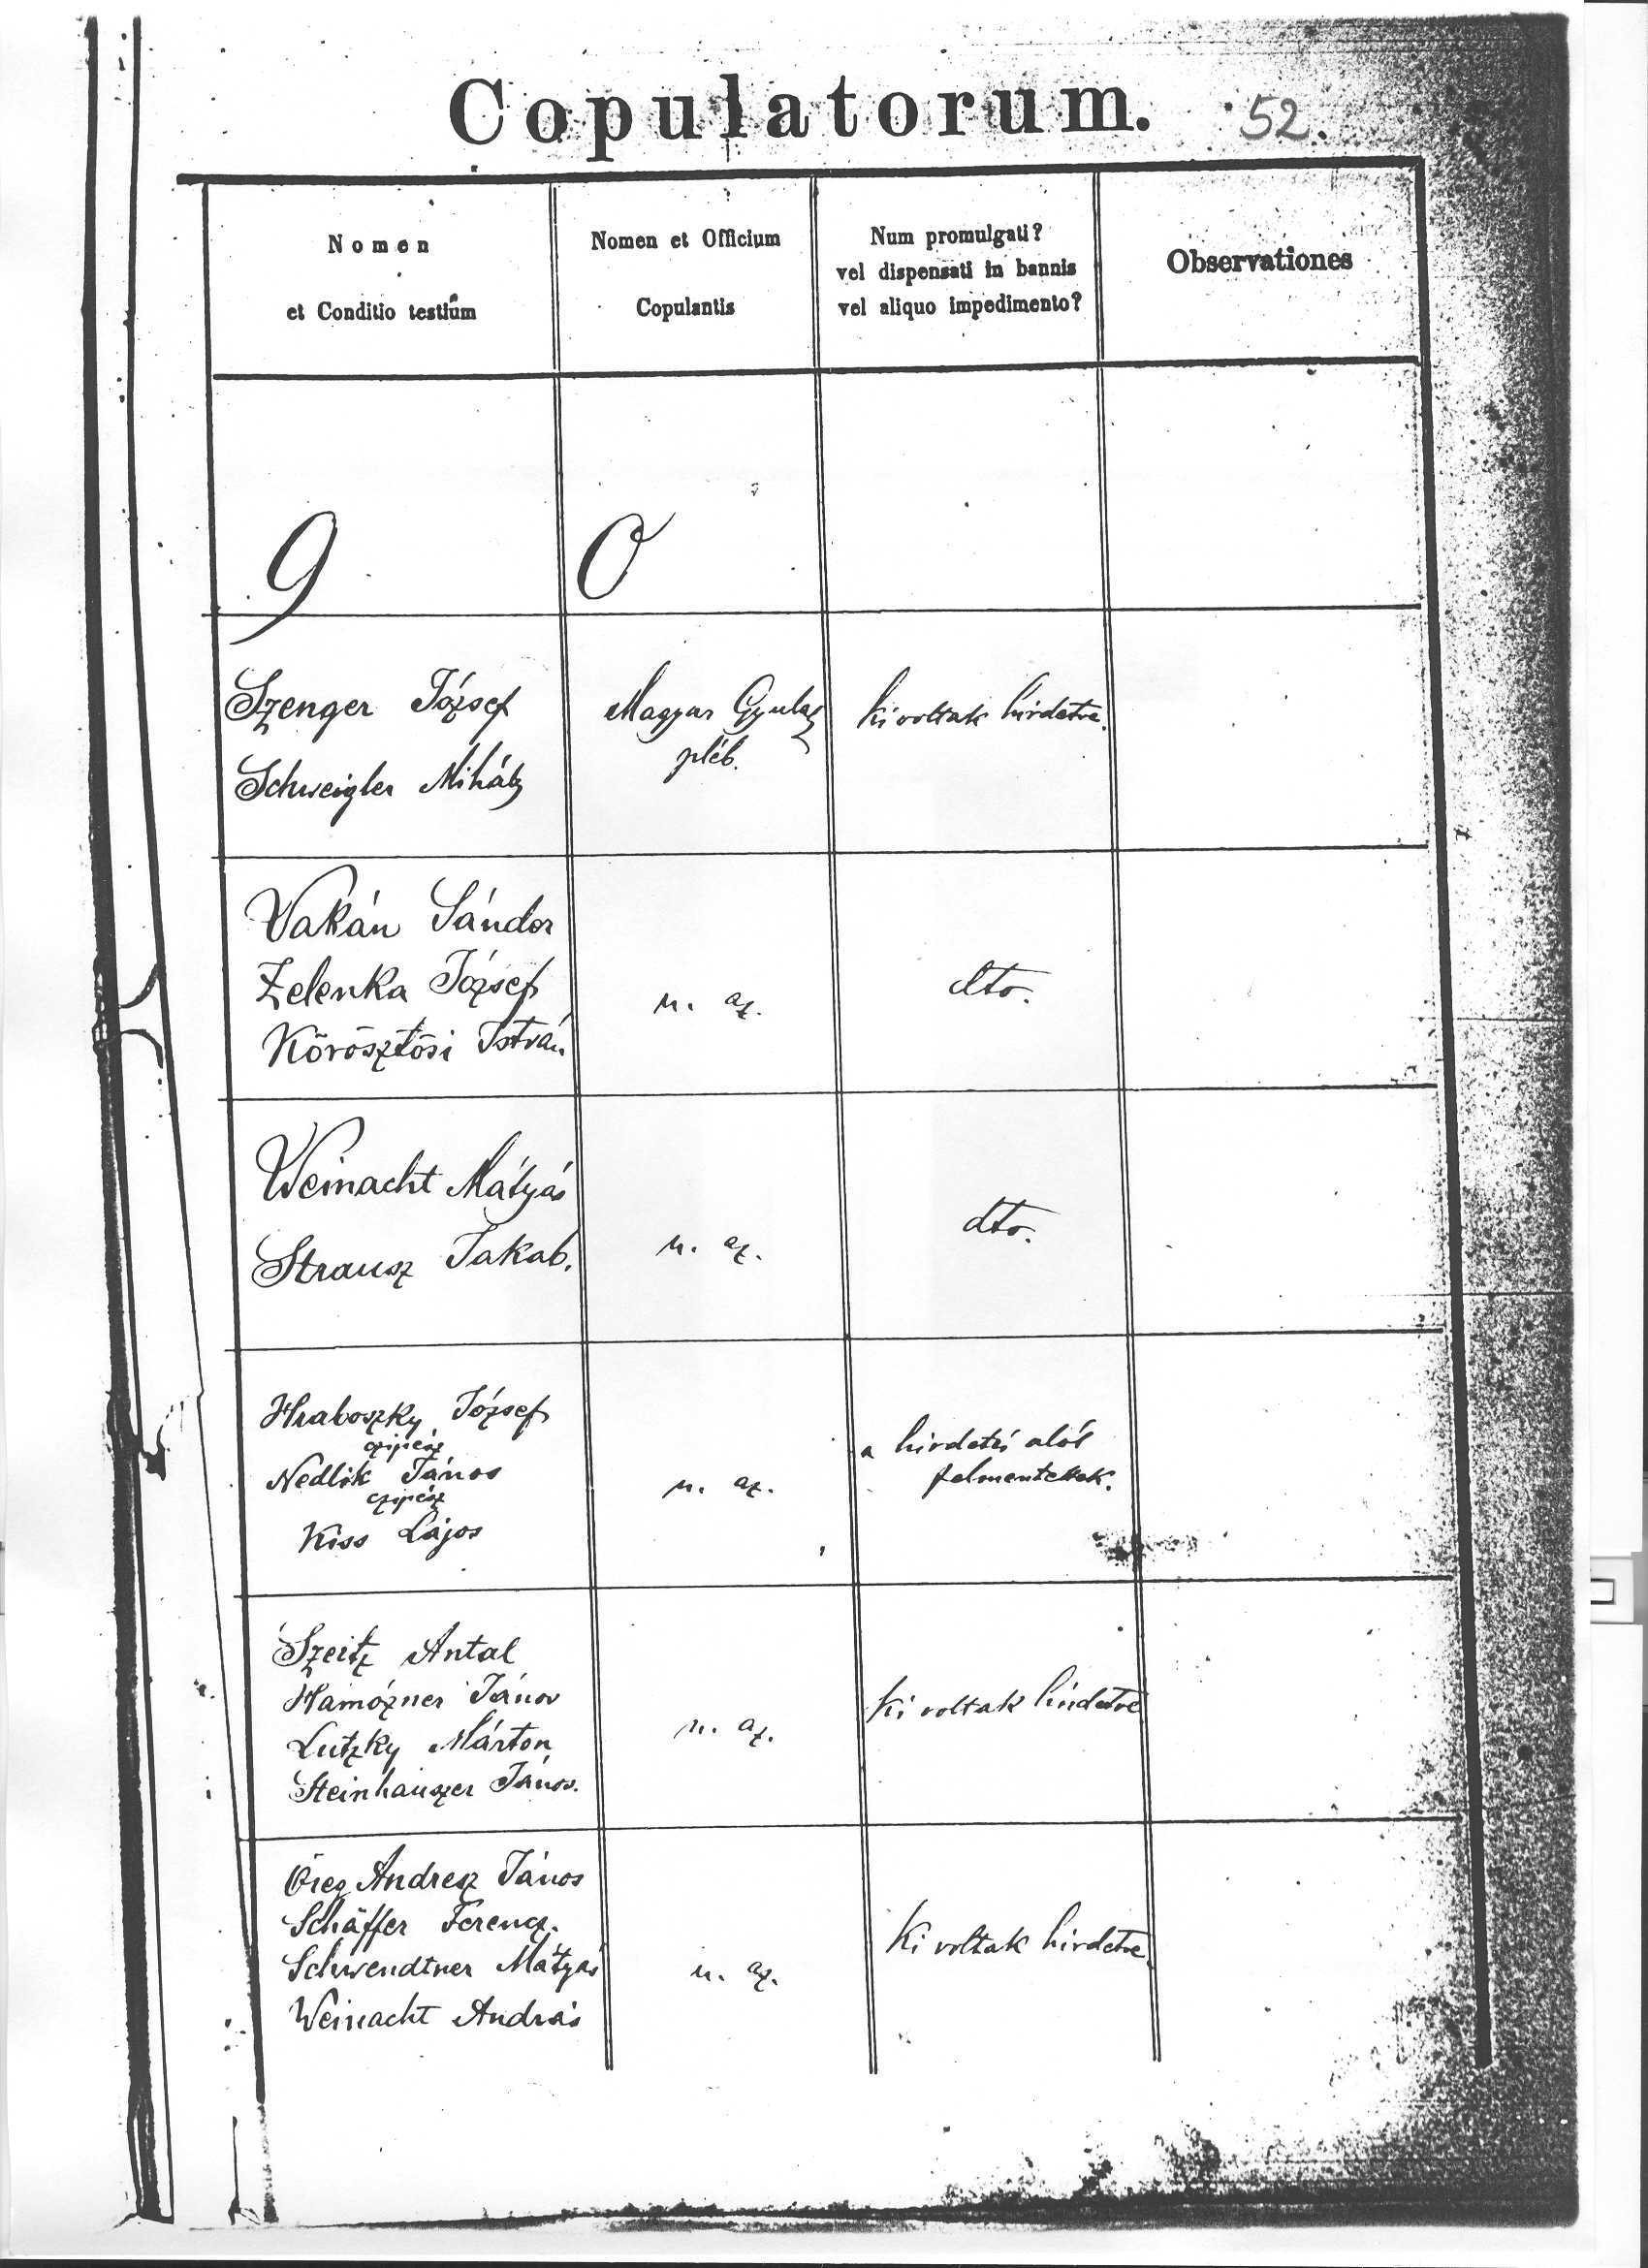 Copulatorum. 52.
Nomen
et Conditio testium
Nomen et Officium
Copulantis
Num promulgati?
vel dispensati in bannis
vel aliquo impedimento?
Observationes
9 0
Szenger József
Schweigler Mihály
Magyar Gyula
pléb.
ki voltak hirdetve.
Vakán Sándor
Zelenka József
Körösztösi István
u. az.
dto.
Weinacht Mátyás
Strausz Jakab.
u. az.
dto.
Hraboszky József
czipész
Nedlik János
czipész
Kiss Lajos
u. az.
a hirdetés alól
felmentettek.
Szeitz Antal
Hamózner János
Lutzky Márton
Steinhauszer János.
u. az.
Ki voltak hirdetve
Öreg Andresz János
Schäffer Ferencz.
Schwendtner Mátyás
Weinacht András
u. az.
Ki voltak hirdetve